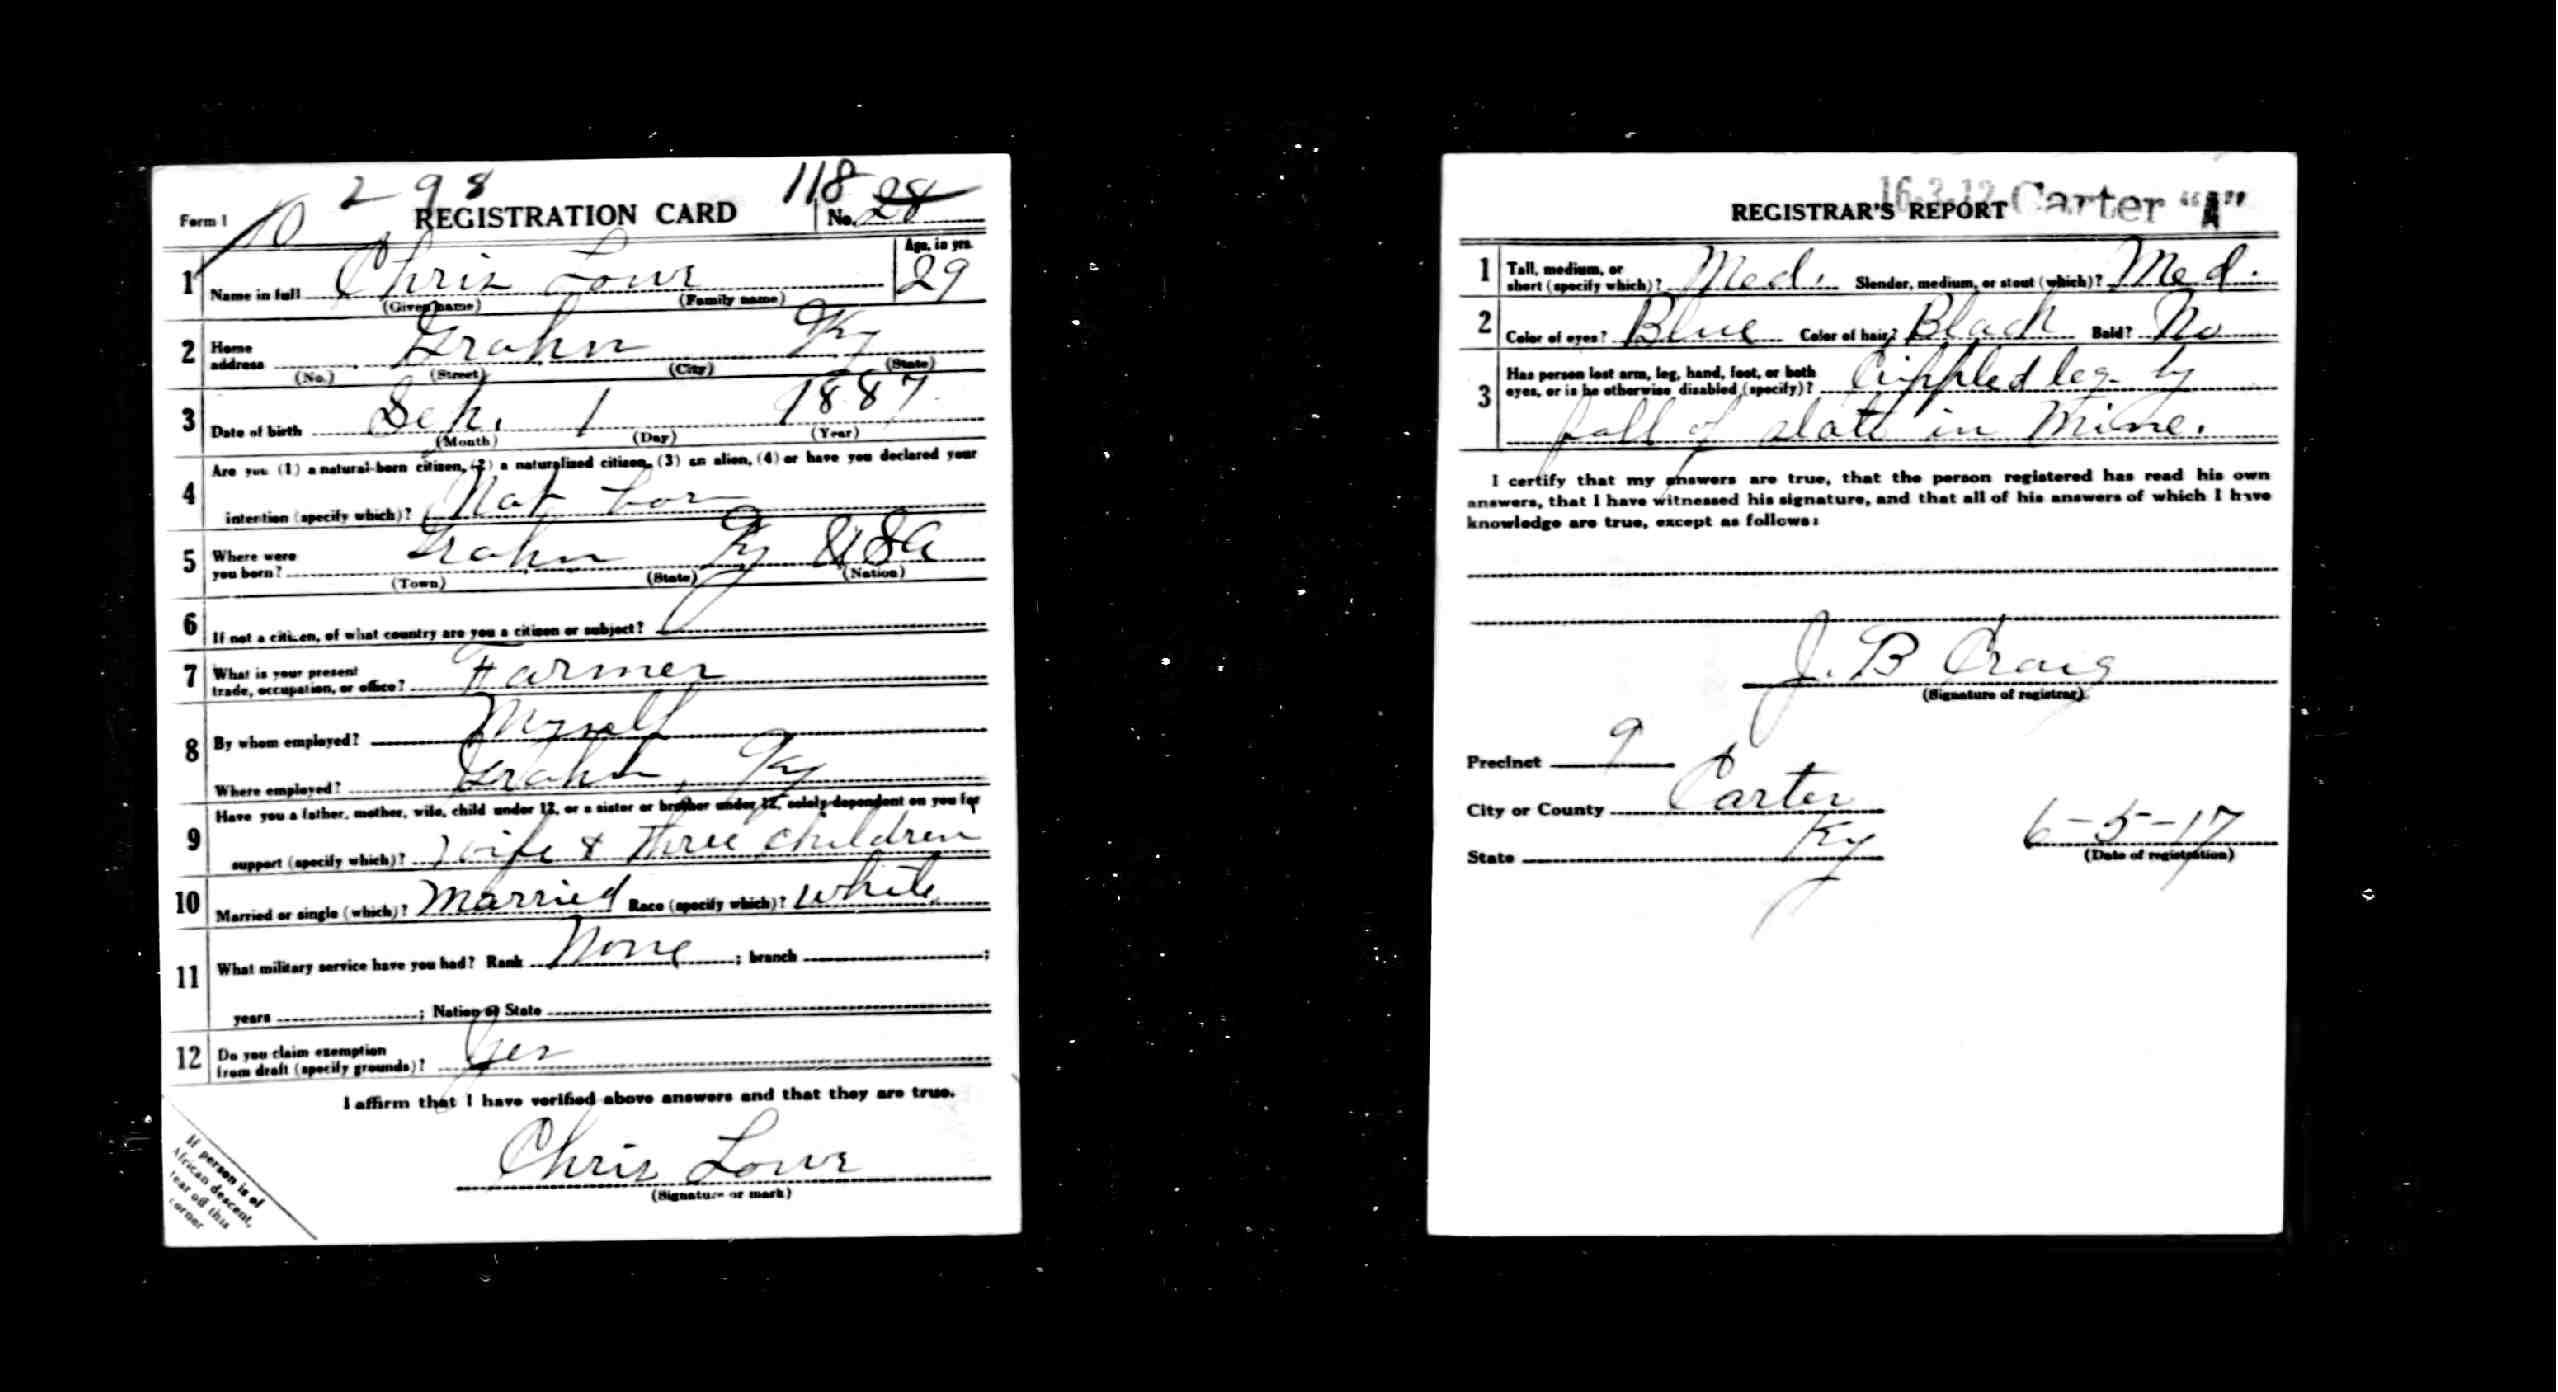 298
118
Form 1 10 REGISTRATION CARD No. 28
Age, in yrs.
1 Name in full Chris Lowe 29
(Given name) (Family name)
2 Home address Grahn Ky
(No.) (Street) (City) (State)
3 Date of birth Sep. 1 1887
(Month) (Day) (Year)
Are you (1) a natural-born citizen, (2) a naturalized citizen, (3) an alien, (4) or have you declared your
4 intention (specify which)? Nat bor
5 Where were you born? Grahn Ky USA
(Town) (State) (Nation)
6 If not a citizen, of what country are you a citizen or subject?
7 What is your present trade, occupation, or office? Farmer
8 By whom employed? Myself
Where employed? Grahn, Ky
Have you a father, mother, wife, child under 12, or a sister or brother under 12, solely dependent on you for
9 support (specify which)? Wife & three children
10 Married or single (which)? Married Race (specify which)? white
11 What military service have you had? Rank None ; branch ;
years ; Nation or State
12 Do you claim exemption from draft (specify grounds)? Yes
I affirm that I have verified above answers and that they are true.
Chris Lowe
(Signature or mark)
If person is of
African descent,
tear off this
corner
16-3-12 Carter "A"
REGISTRAR'S REPORT
1 Tall, medium, or short (specify which)? Med. Slender, medium, or stout (which)? Med.
2 Color of eyes? Blue Color of hair? Black Bald? No
3 Has person lost arm, leg, hand, foot, or both eyes, or is he otherwise disabled (specify)? Crippled leg by
fall of slate in Mine.
I certify that my answers are true, that the person registered has read his own
answers, that I have witnessed his signature, and that all of his answers of which I have
knowledge are true, except as follows:
J. B Craig
(Signature of registrar)
Precinct 9
City or County Carter
State Ky 6-5-17
(Date of registration)